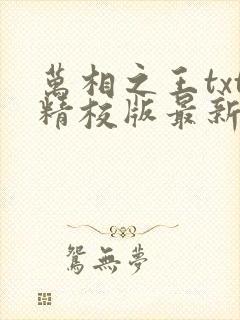 萬相之王txt
精校版最新
鴛無夢